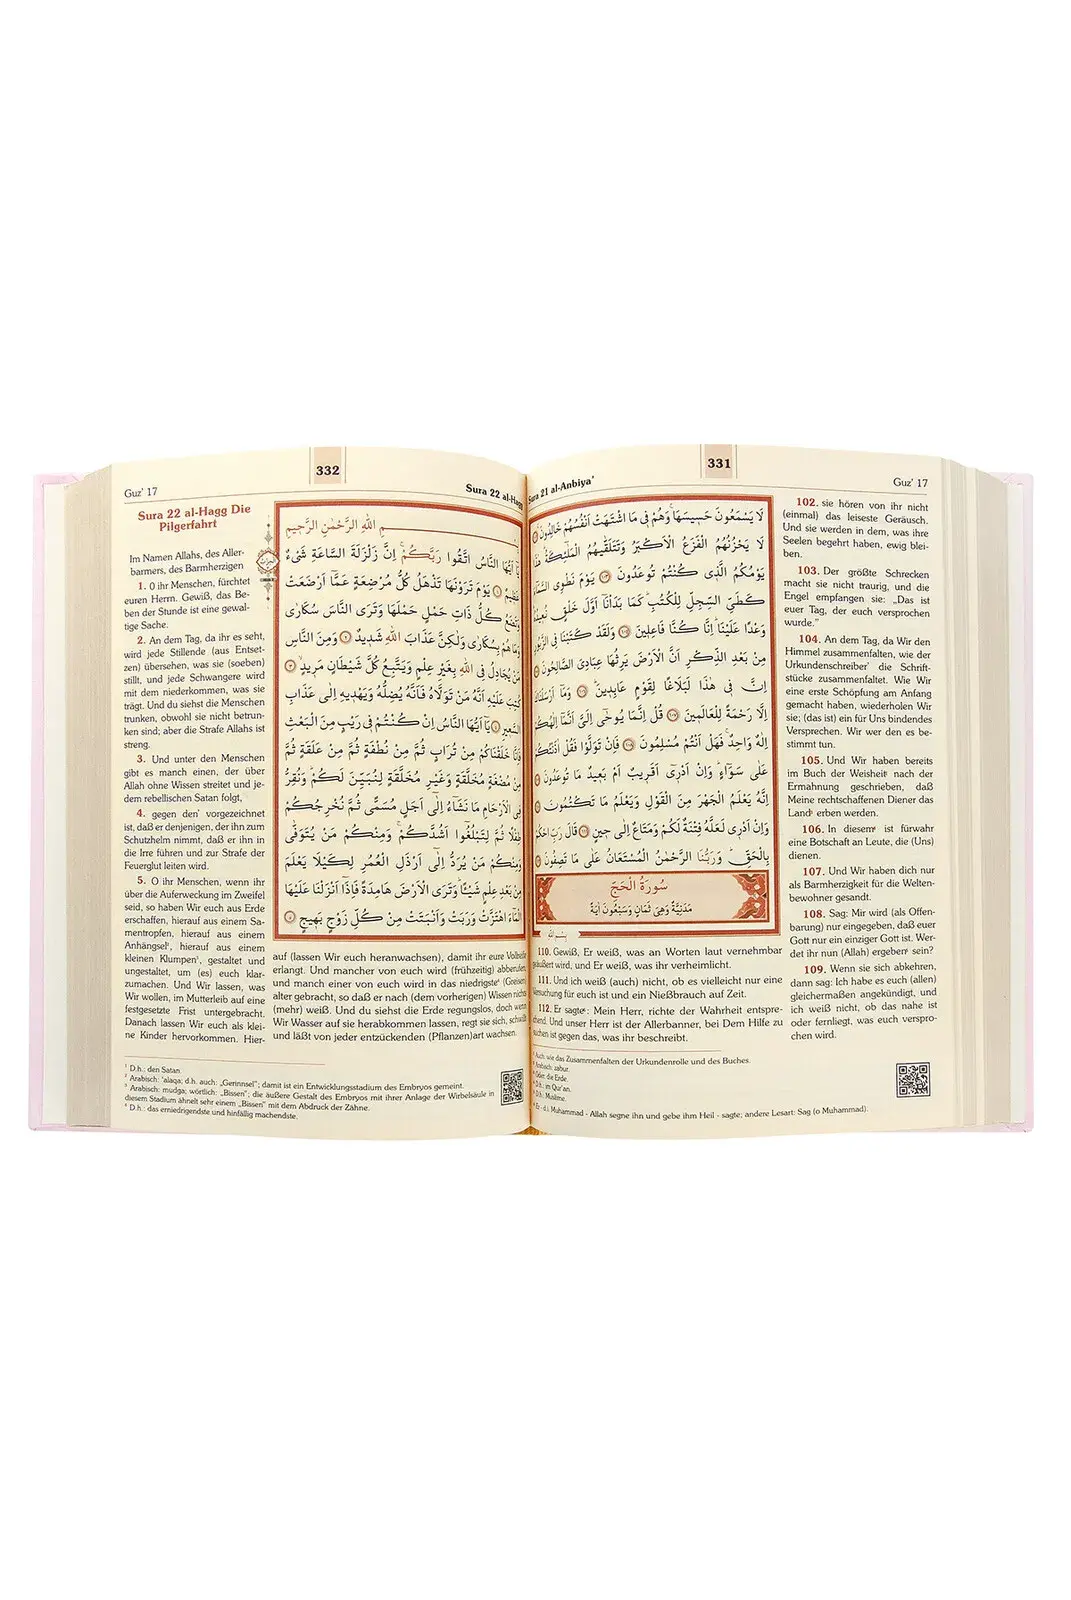 331
Sura 21 al-Anbiya'
Guz' 17
لَا يَسْمَعُونَ حَسِيسَهَا وَهُمْ فِى مَا اشْتَهَتْ اَنْفُسُهُمْ خَالِدُونَ
لَا يَحْزُنُهُمُ الْفَزَعُ الْاَكْبَرُ وَتَتَلَقّٰيهُمُ الْمَلٰٓئِكَةُ
يَوْمُكُمُ الَّذ۪ى كُنْتُمْ تُوعَدُونَ ١٠٣ يَوْمَ نَطْوِى السَّمَٓاءَ
كَطَىِّ السِّجِلِّ لِلْكُتُبِ كَمَا بَدَأْنَٓا اَوَّلَ خَلْقٍ نُع۪يدُهُ
وَعْدًا عَلَيْنَا اِنَّا كُنَّا فَاعِل۪ينَ ١٠٤ وَلَقَدْ كَتَبْنَا فِى الزَّبُورِ
مِنْ بَعْدِ الذِّكْرِ اَنَّ الْاَرْضَ يَرِثُهَا عِبَادِىَ الصَّالِحُونَ
اِنَّ ف۪ى هٰذَا لَبَلَاغًا لِقَوْمٍ عَابِد۪ينَ ١٠٦ وَمَٓا اَرْسَلْنَاكَ
اِلَّا رَحْمَةً لِلْعَالَم۪ينَ ١٠٧ قُلْ اِنَّمَا يُوحٰٓى اِلَىَّ اَنَّمَٓا اِلٰهُكُمْ
اِلٰهٌ وَاحِدٌ فَهَلْ اَنْتُمْ مُسْلِمُونَ ١٠٨ فَاِنْ تَوَلَّوْا فَقُلْ اٰذَنْتُكُمْ
عَلٰى سَوَٓاءٍ وَاِنْ اَدْر۪ٓى اَقَر۪يبٌ اَمْ بَع۪يدٌ مَا تُوعَدُونَ
اِنَّهُ يَعْلَمُ الْجَهْرَ مِنَ الْقَوْلِ وَيَعْلَمُ مَا تَكْتُمُونَ
وَاِنْ اَدْر۪ى لَعَلَّهُ فِتْنَةٌ لَكُمْ وَمَتَاعٌ اِلٰى ح۪ينٍ ١١١ قَالَ رَبِّ احْكُمْ
بِالْحَقِّ وَرَبُّنَا الرَّحْمٰنُ الْمُسْتَعَانُ عَلٰى مَا تَصِفُونَ
سُورَةُ الْحَجِّ
مَدَنِيَّةٌ وَهِىَ ثَمَانٍ وَسَبْعُونَ اٰيَةً
بِسْمِ اللّٰهِ
102. sie hören von ihr nicht
(einmal) das leiseste Geräusch.
Und sie werden in dem, was ihre
Seelen begehrt haben, ewig blei-
ben.
103. Der größte Schrecken
macht sie nicht traurig, und die
Engel empfangen sie: „Das ist
euer Tag, der euch versprochen
wurde.”
104. An dem Tag, da Wir den
Himmel zusammenfalten, wie der
Urkundenschreiber die Schrift-
stücke zusammenfaltet. Wie Wir
eine erste Schöpfung am Anfang
gemacht haben, wiederholen Wir
sie; (das ist) ein für Uns bindendes
Versprechen. Wir wer den es be-
stimmt tun.
105. Und Wir haben bereits
im Buch der Weisheit nach der
Ermahnung geschrieben, daß
Meine rechtschaffenen Diener das
Land erben werden.
106. In diesem ist fürwahr
eine Botschaft an Leute, die (Uns)
dienen.
107. Und Wir haben dich nur
als Barmherzigkeit für die Welten-
bewohner gesandt.
108. Sag: Mir wird (als Offen-
barung) nur eingegeben, daß euer
Gott nur ein einziger Gott ist. Wer-
det ihr nun (Allah) ergeben sein?
109. Wenn sie sich abkehren,
dann sag: Ich habe es euch (allen)
gleichermaßen angekündigt, und
ich weiß nicht, ob das nahe ist
oder fernliegt, was euch verspro-
chen wird.
110. Gewiß, Er weiß, was an Worten laut vernehmbar
geäußert wird, und Er weiß, was ihr verheimlicht.
111. Und ich weiß (auch) nicht, ob es vielleicht nur eine
Versuchung für euch ist und ein Nießbrauch auf Zeit.
112. Er sagte: Mein Herr, richte der Wahrheit entspre-
chend. Und unser Herr ist der Allerbanner, bei Dem Hilfe zu
suchen ist gegen das, was ihr beschreibt.
Auch: wie das Zusammenfalten der Urkundenrolle und des Buches.
Arabisch: zabur.
Oder: die Erde.
D.h.: im Qur'an.
D.h.: Muslime.
Er - d.i. Muhammad - Allah segne ihn und gebe ihm Heil - sagte; andere Lesart: Sag (o Muhammad).
332
Guz' 17
Sura 22 al-Hagg
Sura 22 al-Hagg Die
Pilgerfahrt
Im Namen Allahs, des Aller-
barmers, des Barmherzigen
1. O ihr Menschen, fürchtet
euren Herrn. Gewiß, das Be-
ben der Stunde ist eine gewal-
tige Sache.
2. An dem Tag, da ihr es seht,
wird jede Stillende (aus Entset-
zen) übersehen, was sie (soeben)
stillt, und jede Schwangere wird
mit dem niederkommen, was sie
trägt. Und du siehst die Menschen
trunken, obwohl sie nicht betrun-
ken sind; aber die Strafe Allahs ist
streng.
3. Und unter den Menschen
gibt es manch einen, der über
Allah ohne Wissen streitet und je-
dem rebellischen Satan folgt,
4. gegen den¹ vorgezeichnet
ist, daß er denjenigen, der ihn zum
Schutzhelm nimmt, daß er ihn in
die Irre führen und zur Strafe der
Feuerglut leiten wird.
5. O ihr Menschen, wenn ihr
über die Auferweckung im Zweifel
seid, so haben Wir euch aus Erde
erschaffen, hierauf aus einem Sa-
mentropfen, hierauf aus einem
Anhängsel², hierauf aus einem
kleinen Klumpen³, gestaltet und
ungestaltet, um (es) euch klar-
zumachen. Und Wir lassen, was
Wir wollen, im Mutterleib auf eine
festgesetzte Frist untergebracht.
Danach lassen Wir euch als klei-
ne Kinder hervorkommen. Hier-
اللّٰهِ الرَّحْمٰنِ الرَّح۪يمِ
يَٓا اَيُّهَا النَّاسُ اتَّقُوا رَبَّكُمْ اِنَّ زَلْزَلَةَ السَّاعَةِ شَىْءٌ
عَظ۪يمٌ ١ يَوْمَ تَرَوْنَهَا تَذْهَلُ كُلُّ مُرْضِعَةٍ عَمَّٓا اَرْضَعَتْ
وَتَضَعُ كُلُّ ذَاتِ حَمْلٍ حَمْلَهَا وَتَرَى النَّاسَ سُكَارٰى
وَمَا هُمْ بِسُكَارٰى وَلٰكِنَّ عَذَابَ اللّٰهِ شَد۪يدٌ ٢ وَمِنَ النَّاسِ
مَنْ يُجَادِلُ فِى اللّٰهِ بِغَيْرِ عِلْمٍ وَيَتَّبِعُ كُلَّ شَيْطَانٍ مَر۪يدٍ ٣
كُتِبَ عَلَيْهِ اَنَّهُ مَنْ تَوَلَّاهُ فَاَنَّهُ يُضِلُّهُ وَيَهْد۪يهِ اِلٰى عَذَابِ
السَّع۪يرِ ٤ يَٓا اَيُّهَا النَّاسُ اِنْ كُنْتُمْ ف۪ى رَيْبٍ مِنَ الْبَعْثِ
فَاِنَّا خَلَقْنَاكُمْ مِنْ تُرَابٍ ثُمَّ مِنْ نُطْفَةٍ ثُمَّ مِنْ عَلَقَةٍ ثُمَّ
مِنْ مُضْغَةٍ مُخَلَّقَةٍ وَغَيْرِ مُخَلَّقَةٍ لِنُبَيِّنَ لَكُمْ وَنُقِرُّ
فِى الْاَرْحَامِ مَا نَشَٓاءُ اِلٰٓى اَجَلٍ مُسَمًّى ثُمَّ نُخْرِجُكُمْ
طِفْلًا ثُمَّ لِتَبْلُغُٓوا اَشُدَّكُمْ وَمِنْكُمْ مَنْ يُتَوَفّٰى
وَمِنْكُمْ مَنْ يُرَدُّ اِلٰٓى اَرْذَلِ الْعُمُرِ لِكَيْلَا يَعْلَمَ
مِنْ بَعْدِ عِلْمٍ شَيْـًٔا وَتَرَى الْاَرْضَ هَامِدَةً فَاِذَٓا اَنْزَلْنَا عَلَيْهَا
الْمَٓاءَ اهْتَزَّتْ وَرَبَتْ وَاَنْبَتَتْ مِنْ كُلِّ زَوْجٍ بَه۪يجٍ ٥
auf (lassen Wir euch heranwachsen), damit ihr eure Vollreife
erlangt. Und mancher von euch wird (frühzeitig) abberufen,
und manch einer von euch wird in das niedrigste⁴ (Greisen)
alter gebracht, so daß er nach (dem vorherigen) Wissen nichts
(mehr) weiß. Und du siehst die Erde regungslos, doch wenn
Wir Wasser auf sie herabkommen lassen, regt sie sich, schwillt
und läßt von jeder entzückenden (Pflanzen)art wachsen.
¹ D.h.: den Satan.
² Arabisch: 'alaqa; d.h. auch: „Gerinnsel”; damit ist ein Entwicklungsstadium des Embryos gemeint.
³ Arabisch: mudga; wörtlich: „Bissen”; die äußere Gestalt des Embryos mit ihrer Anlage der Wirbelsäule in
diesem Stadium ähnelt sehr einem „Bissen” mit dem Abdruck der Zähne.
⁴ D.h.: das erniedrigendste und hinfällig machendste.